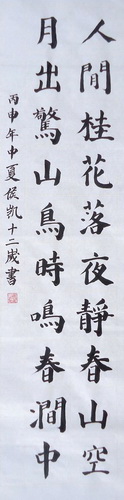 人間桂花落夜靜春山空
月出驚山鳥時鳴春澗中
丙申年中夏侯凱十二歲書